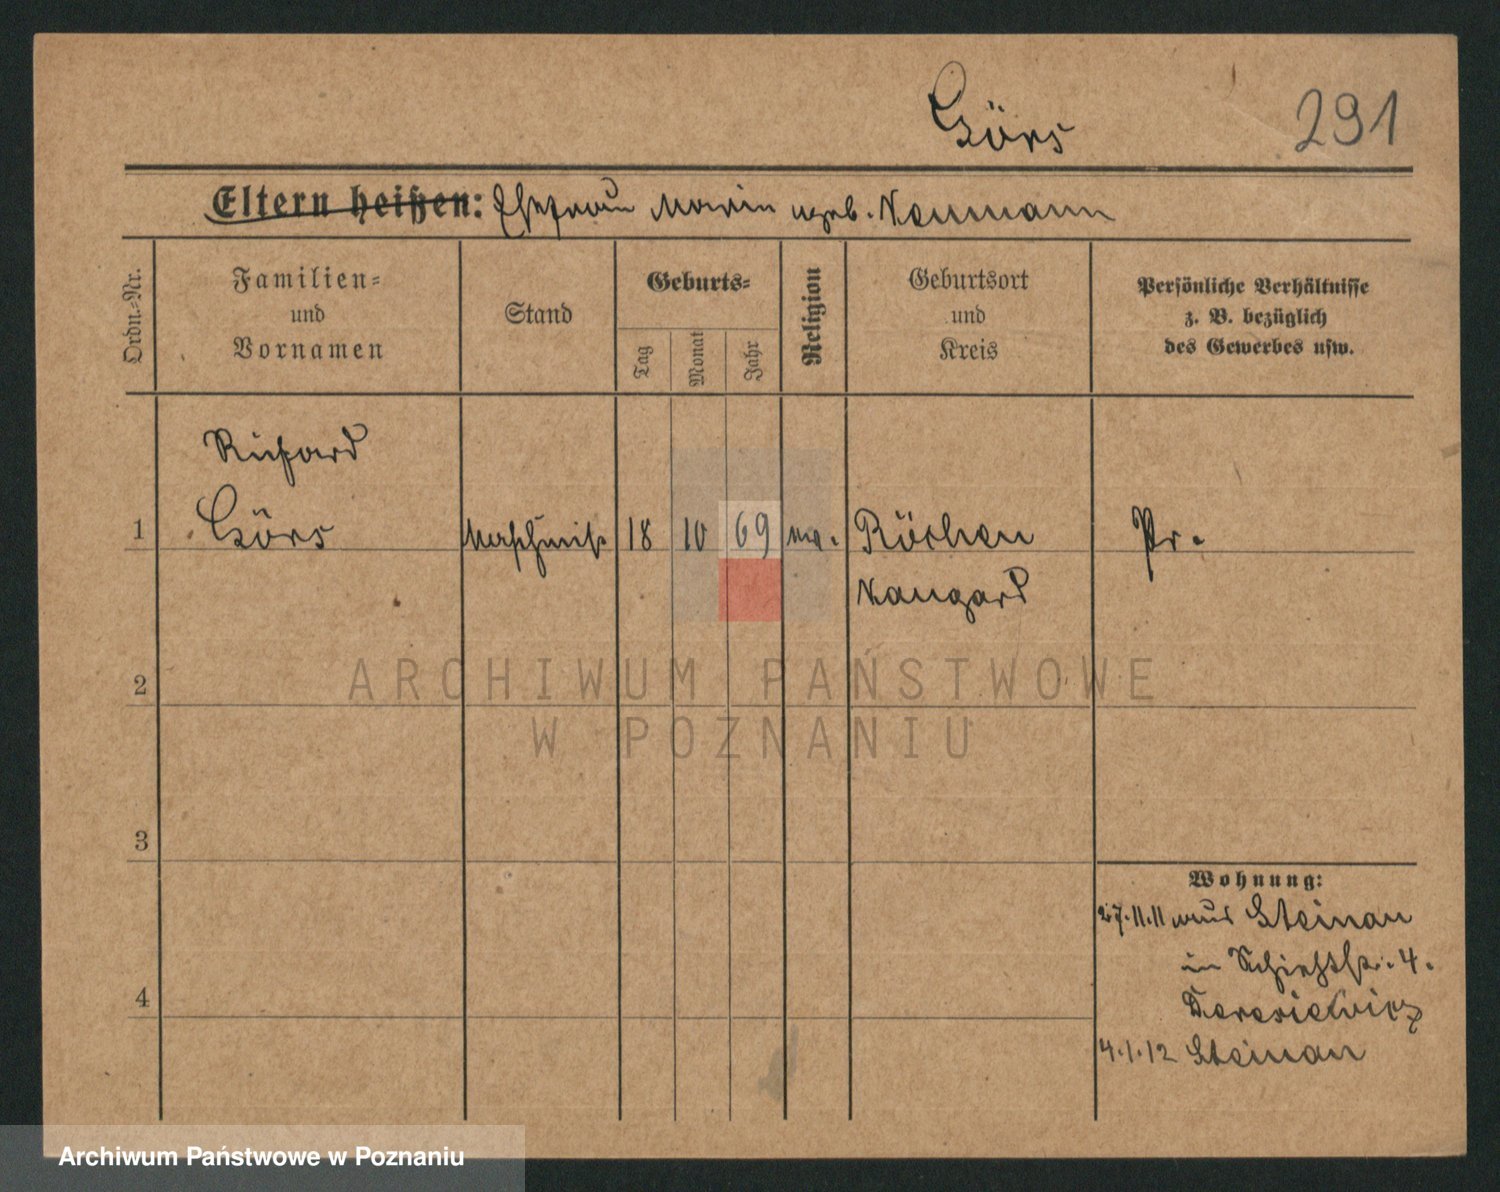 Görs
291
Eltern heißen: Ehefrau Maria geb. Neumann
Ordn.-Nr.
Familien-
und
Vornamen
Stand
Geburts-
Tag
Monat
Jahr
Religion
Geburtsort
und
Kreis
Persönliche Verhältnisse
z. B. bezüglich
des Gewerbes usw.
Richard
1 Görs 18 10 69 Röschen Pr.
Naugard
2
3
4
ARCHIWUM PAŃSTWOWE
W POZNANIU
Wohnung:
27.11.11 Steinau
in 4.
4.1.12 Steinau
Archiwum Państwowe w Poznaniu